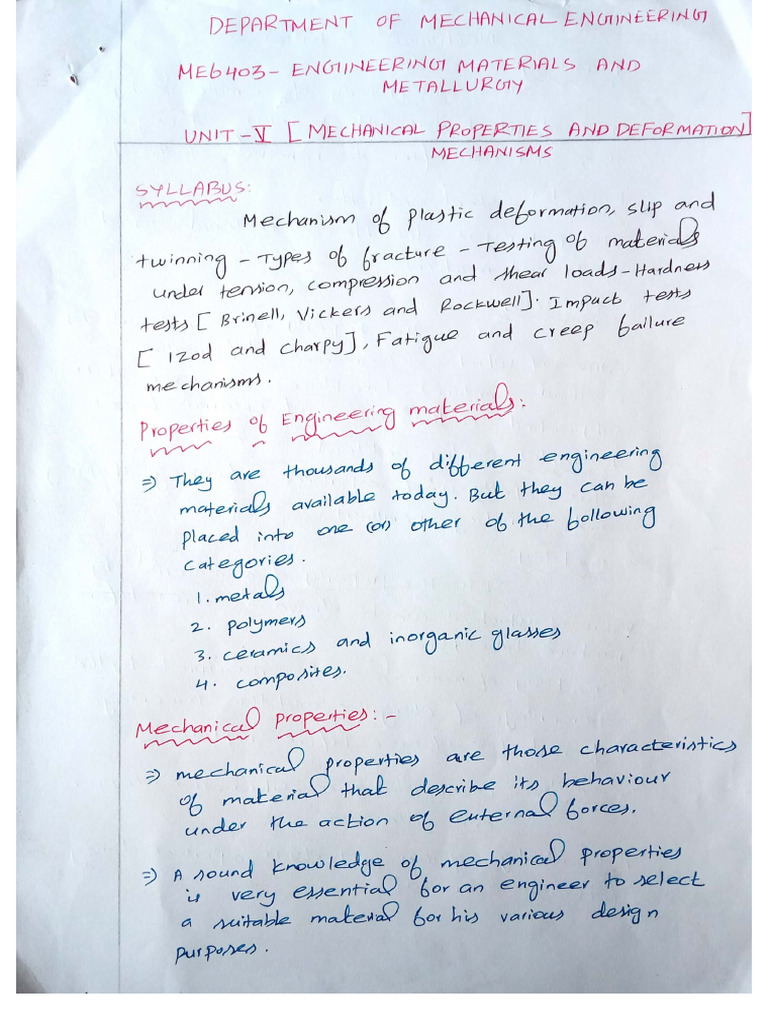 DEPARTMENT OF MECHANICAL ENGINEERING
ME6403- ENGINEERING MATERIALS AND
METALLURGY
UNIT-V [MECHANICAL PROPERTIES AND DEFORMATION]
MECHANISMS
SYLLABUS:
Mechanism of plastic deformation, slip and
twinning - Types of fracture - Testing of materials
under tension, compression and shear loads - Hardness
tests [Brinell, Vickers and Rockwell]. Impact tests
[Izod and Charpy], Fatigue and creep failure
mechanisms.
Properties of Engineering materials:
⇒ They are thousands of different engineering
materials available today. But they can be
placed into one (or) other of the following
categories.
1. metals
2. polymers
3. ceramics and inorganic glasses
4. composites.
Mechanical properties:-
⇒ mechanical properties are those characteristics
of material that describe its behaviour
under the action of external forces.
⇒ A sound knowledge of mechanical properties
is very essential for an engineer to select
a suitable material for his various design
purposes.